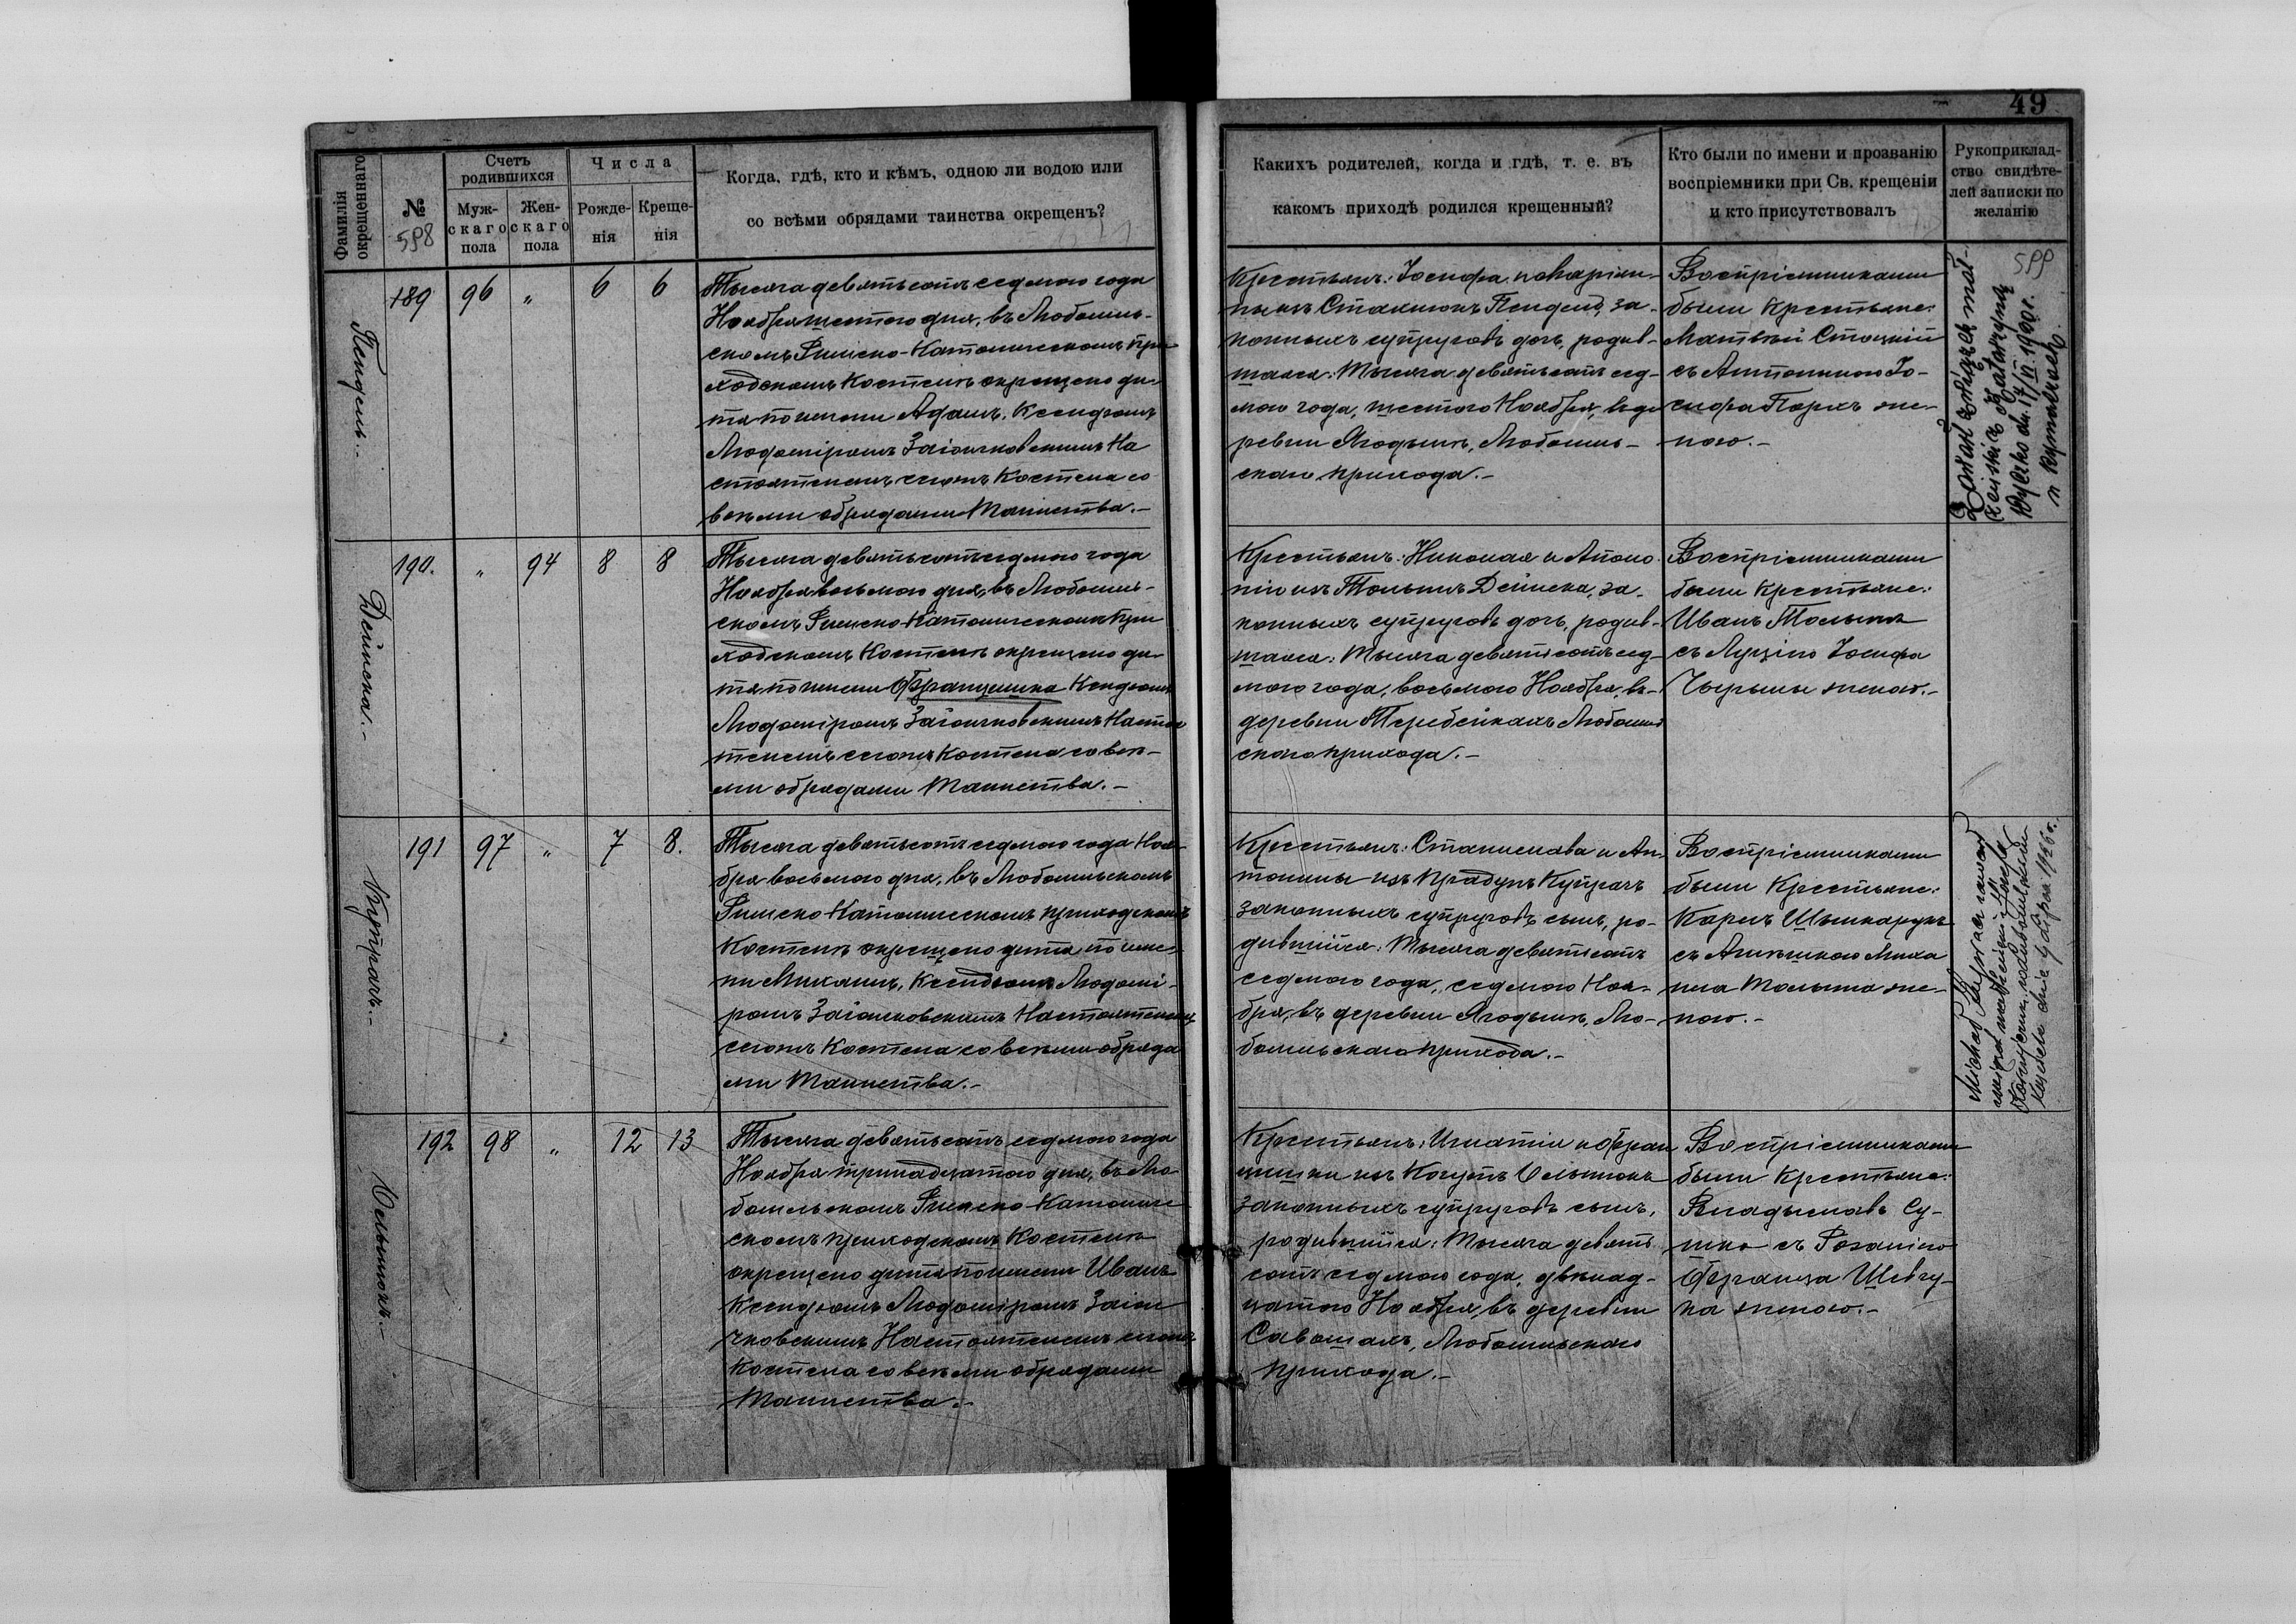 49
Фамилія
окрещеннаго
№
598
Счетъ
родившихся
Муж-
скаго
пола
Жен-
скаго
пола
Числа
Рожде-
нія
Креще-
нія
Когда, гдѣ, кто и кѣмъ, одною ли водою или
со всѣми обрядами таинства окрещенъ?
Какихъ родителей, когда и гдѣ, т. е. въ
какомъ приходѣ родился крещенный?
Кто были по имени и прозванію
воспріемники при Св. крещеніи
и кто присутствовалъ
Рукоприклад-
ство свидѣте-
лей записки по
желанію
599
189
96
"
6
6
Тысяча девятьсотъ седмого года
Ноября шестого дня, въ Любомль-
скомъ Римско-Католическомъ При-
ходскомъ Костелѣ окрещено ди-
тя по имени Адамъ, Ксендзомъ
Людоміромъ Заіончковскимъ На
стоятелемъ сегожъ Костела со
всѣми обрядами Таинства.-
Крестьянъ: Іосифа и Маріан-
ны изъ Станюкъ Пендель, за-
конныхъ супруговъ дочь, родив-
шаяся: Тысяча девятьсотъ сед-
мого года, шестого Ноября, въ де
ревни Ягодынѣ, Любомль-
скаго прихода.-
Воспріемниками
были Крестьяне:
Матвѣй Стоцкій
съ Антониною Іо-
сифа Поркъ же-
ною.-
190.
"
94
8
8
Дейнека.-
Тысяча девятьсотъ седмого года
Ноября восьмого дня, въ Любомль-
скомъ Римско-Католическомъ При
ходскомъ Костелѣ окрещено ди-
тя по имени Францишка Ксендзомъ
Людоміромъ Заіончковскимъ Настоя
телемъ сегожъ Костела со всѣ-
ми обрядами Таинства.-
Крестьянъ: Николая и Аполо
ніи изъ Тольпъ Дейнека, за-
конныхъ супруговъ дочь, родив-
шаяся: Тысяча девятьсотъ сед-
мого года, восьмого Ноября, въ
деревни Теребейкахъ Любомль
скаго прихода.-
Воспріемниками
были Крестьяне:
Иванъ
съ Луціею Іосифа
женою.-
191
97
"
7
8.
Купрачъ.-
Тысяча девятьсотъ седмого года Ноя-
бря восьмого дня, въ Любомльскомъ
Римско-Католическомъ приходскомъ
Костелѣ окрещено дитя по име-
ни Михаилъ, Ксендзомъ Людомі-
ромъ Заіончковскимъ Настоятелемъ
сегожъ Костела со всѣми обряда
ми Таинства.-
Крестьянъ: Станислава и Ан-
тонины изъ Прадунъ Купрачъ
законныхъ супруговъ сынъ, ро-
дившійся: Тысяча девятьсотъ
седмого года, седмого Ноя-
бря, въ деревни Ягодынѣ, Лю-
бомльскаго прихода.-
Воспріемниками
были Крестьяне:
Кароль
съ Михаи
ла женою.-
192
98
"
12
13
Ольшюкъ.-
Тысяча девятьсотъ седмого года
Ноября тринадцатого дня, въ Лю-
бомльскомъ Римско-Католиче
скомъ приходскомъ Костелѣ
окрещено дитя по имени Иванъ
Ксендзомъ Людоміромъ Заіон-
чковскимъ Настоятелемъ сегожъ
Костела со всѣми обрядами
Таинства.-
Крестьянъ: Игнатія и Фран
цишки изъ Когутъ Ольшюкъ
законныхъ супруговъ сынъ,
родившійся: Тысяча девять
сотъ седмого года, двѣнад-
цатого Ноября, въ деревни
Савошахъ, Любомльскаго
прихода.-
Воспріемниками
были Крестьяне:
Владыславъ Су-
шко съ Розаліею
Франца Шевчу-
ка женою.-